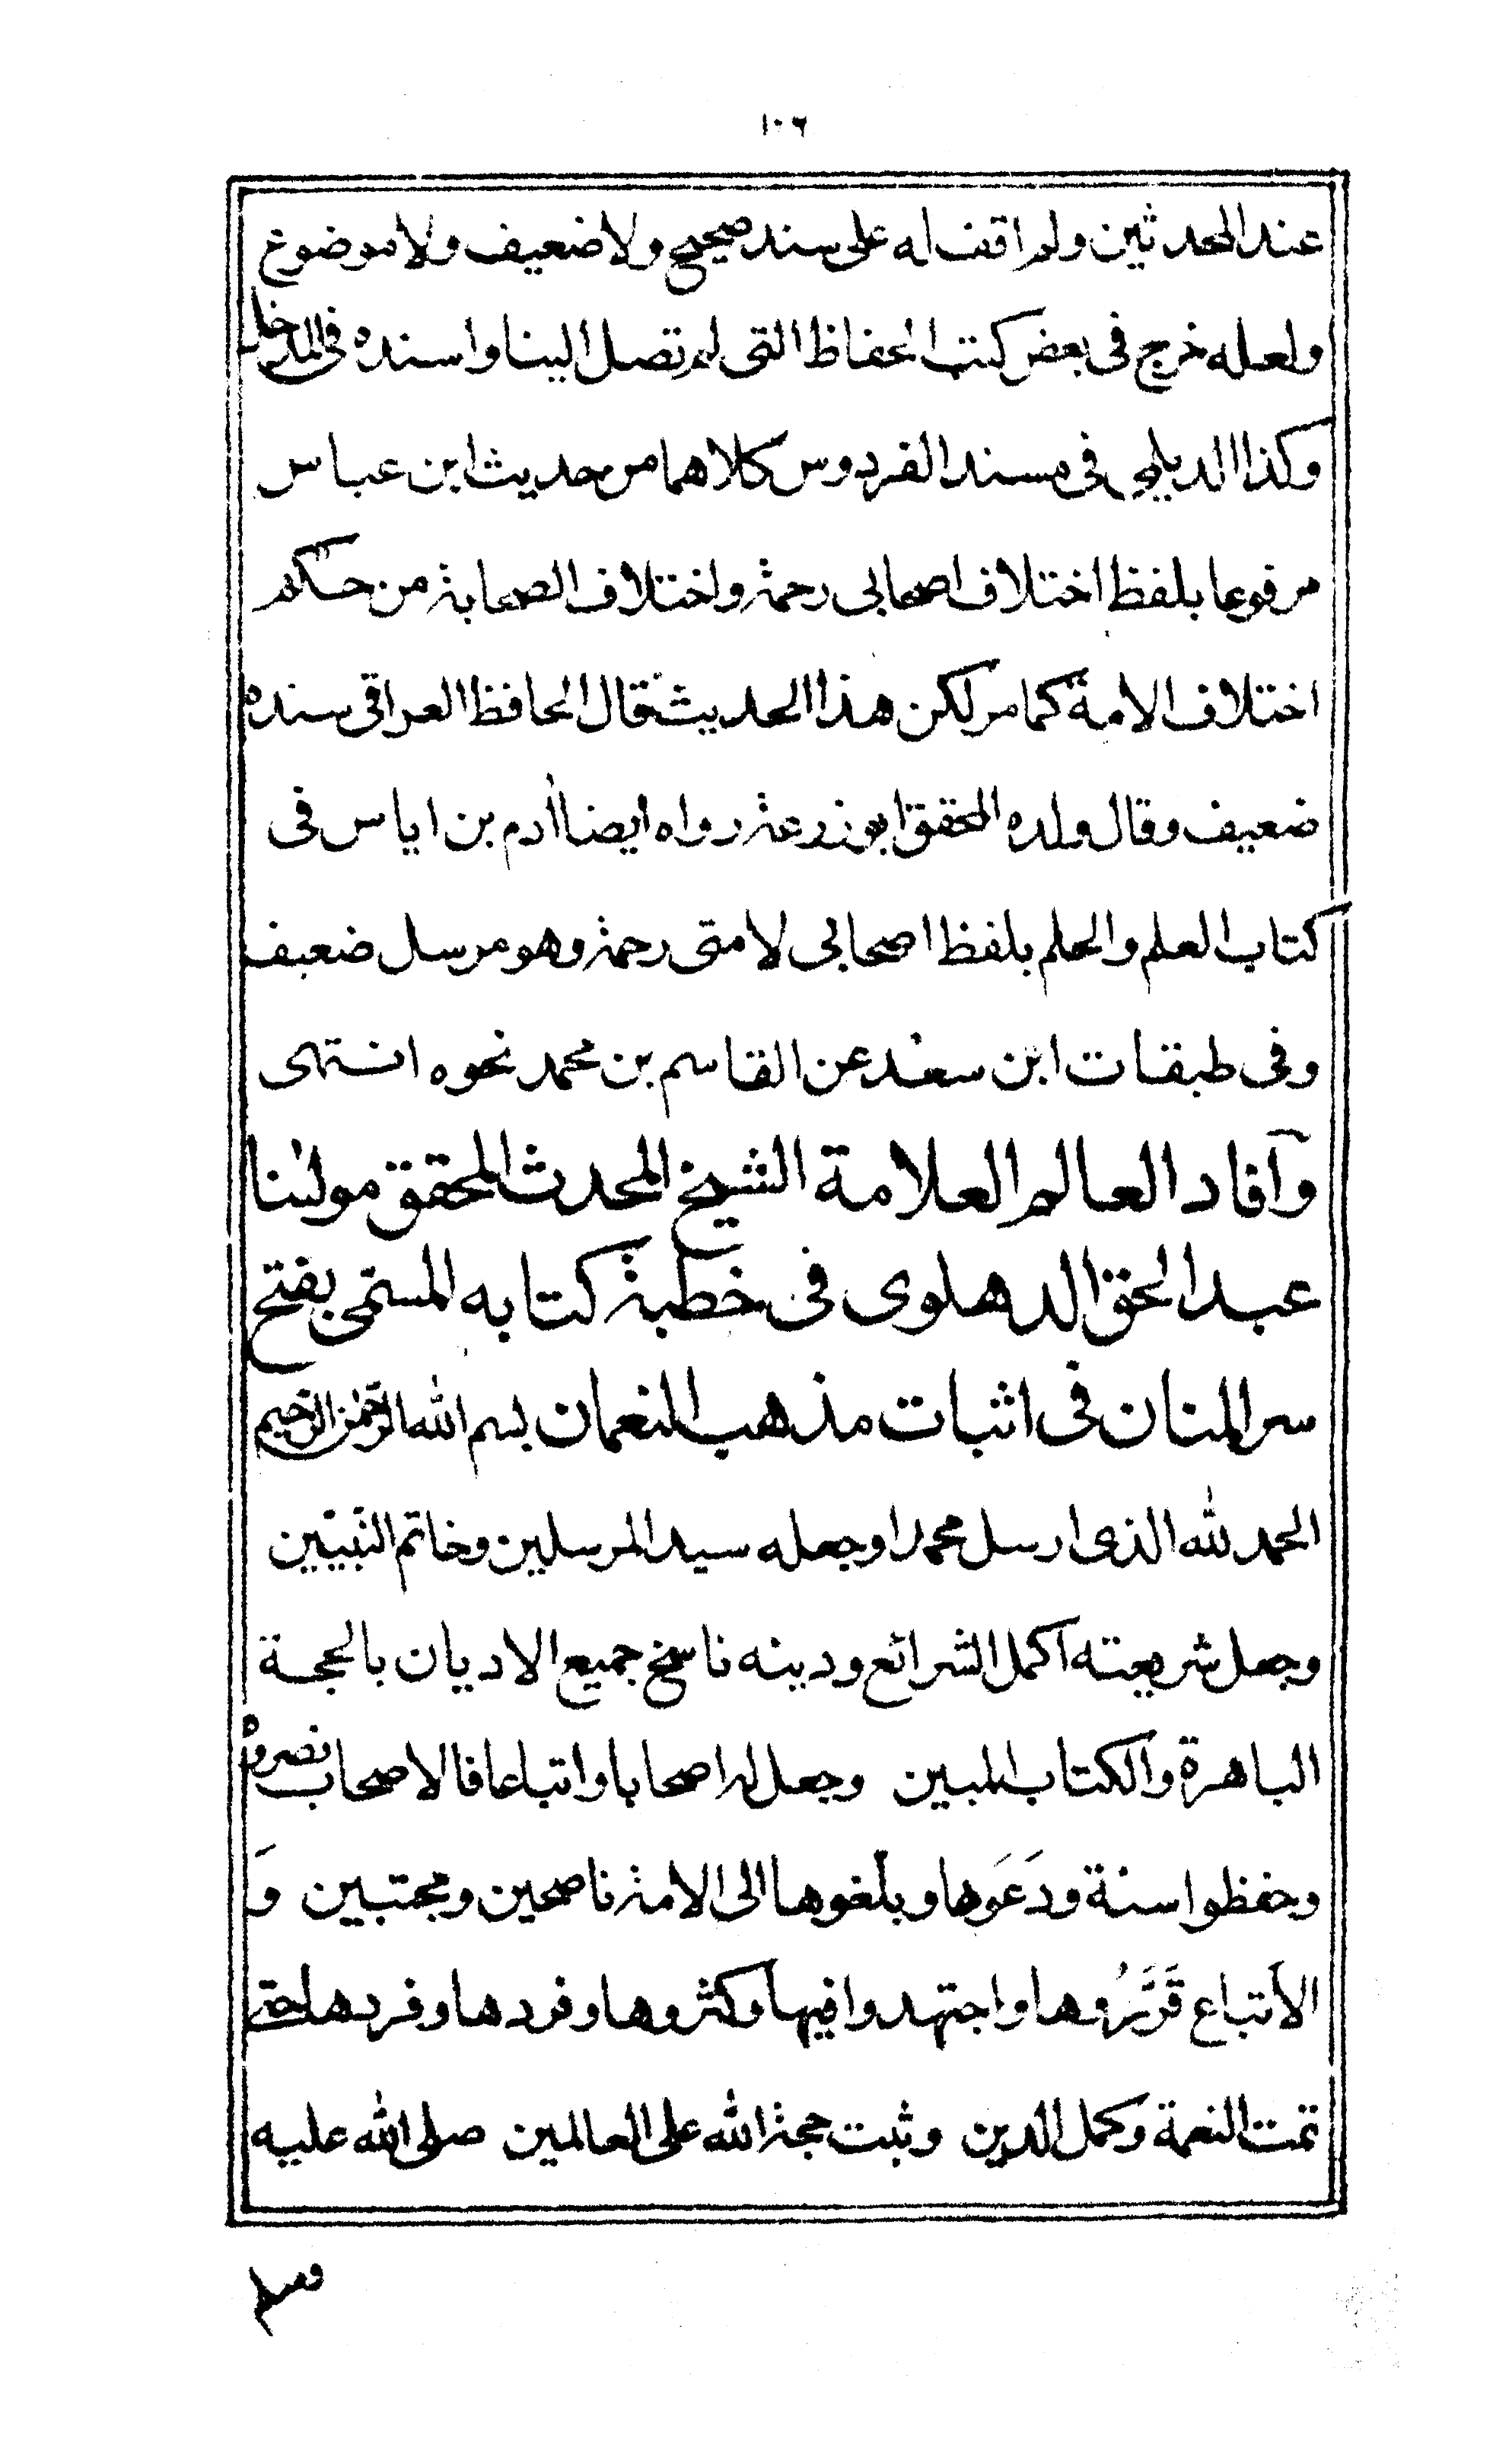 ١٠٦
عند المحدثين ولم اقف له على سند صحيح ولا ضعيف ولا موضوع
ولعله خرج فى بعض كتب الحفاظ التى لم تصل الينا واسنده فى المدخل
وكذا الديلمى فى مسند الفردوس كلاهما من حديث ابن عباس
مرفوعا بلفظ اختلاف اصحابى رحمة واختلاف الصحابة من حكم
اختلاف الامة كما مر لكن هذا الحديث قال الحافظ العراقى سنده
ضعيف وقال ولده المحقق ابو زرعة رواه ايضا أدم بن اياس فى
كتاب العلم والحلم بلفظ اصحابى لامتى رحمة وهو مرسل ضعيف
وفى طبقات ابن سعد عن القاسم بن محمد نحوه انتهى
وآفاد العالم العلامة الشيخ المحدث المحقق مولٰنا
عبد الحق الدهلوى فى خطبة كتابه المسمى بفتح
سر المنان فى اثبات مذهب النعمان بسم الله الرّحمٰن الرّحيم
الحمد لله الذى ارسل محمدا وجعله سيد المرسلين وخاتم النّبيّين
وجعل شريعته اكمل الشرائع ودينه ناسخ جميع الاديان بالحجة
الباهرة والكتاب المبين وجعل له اصحابا واتباعا فالاصحاب نصروه
وحفظوا سنة ودَعَوها وبلّغوها الى الامة ناصحين ومجتبين وَ
الأتباع قَرَّرُوها واجتهدوا فيها وكثروها وفردها وفردها حتى
تمت النعمة وكمل الدين وثبت حجة الله على العالمين صلى الله عليه
وسلم